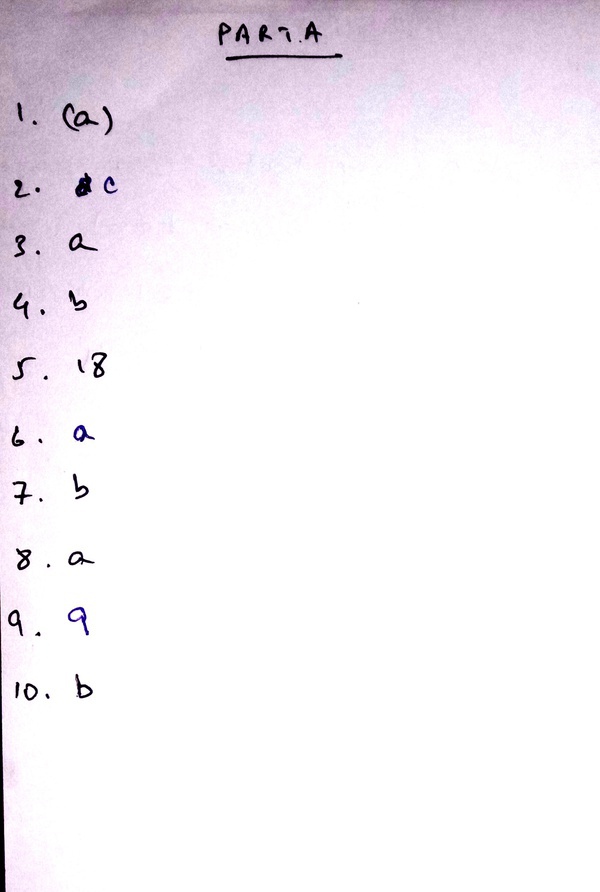 PART.A
1. (a)
2. c
3. a
4. b
5. 18
6. a
7. b
8. a
9. 9
10. b